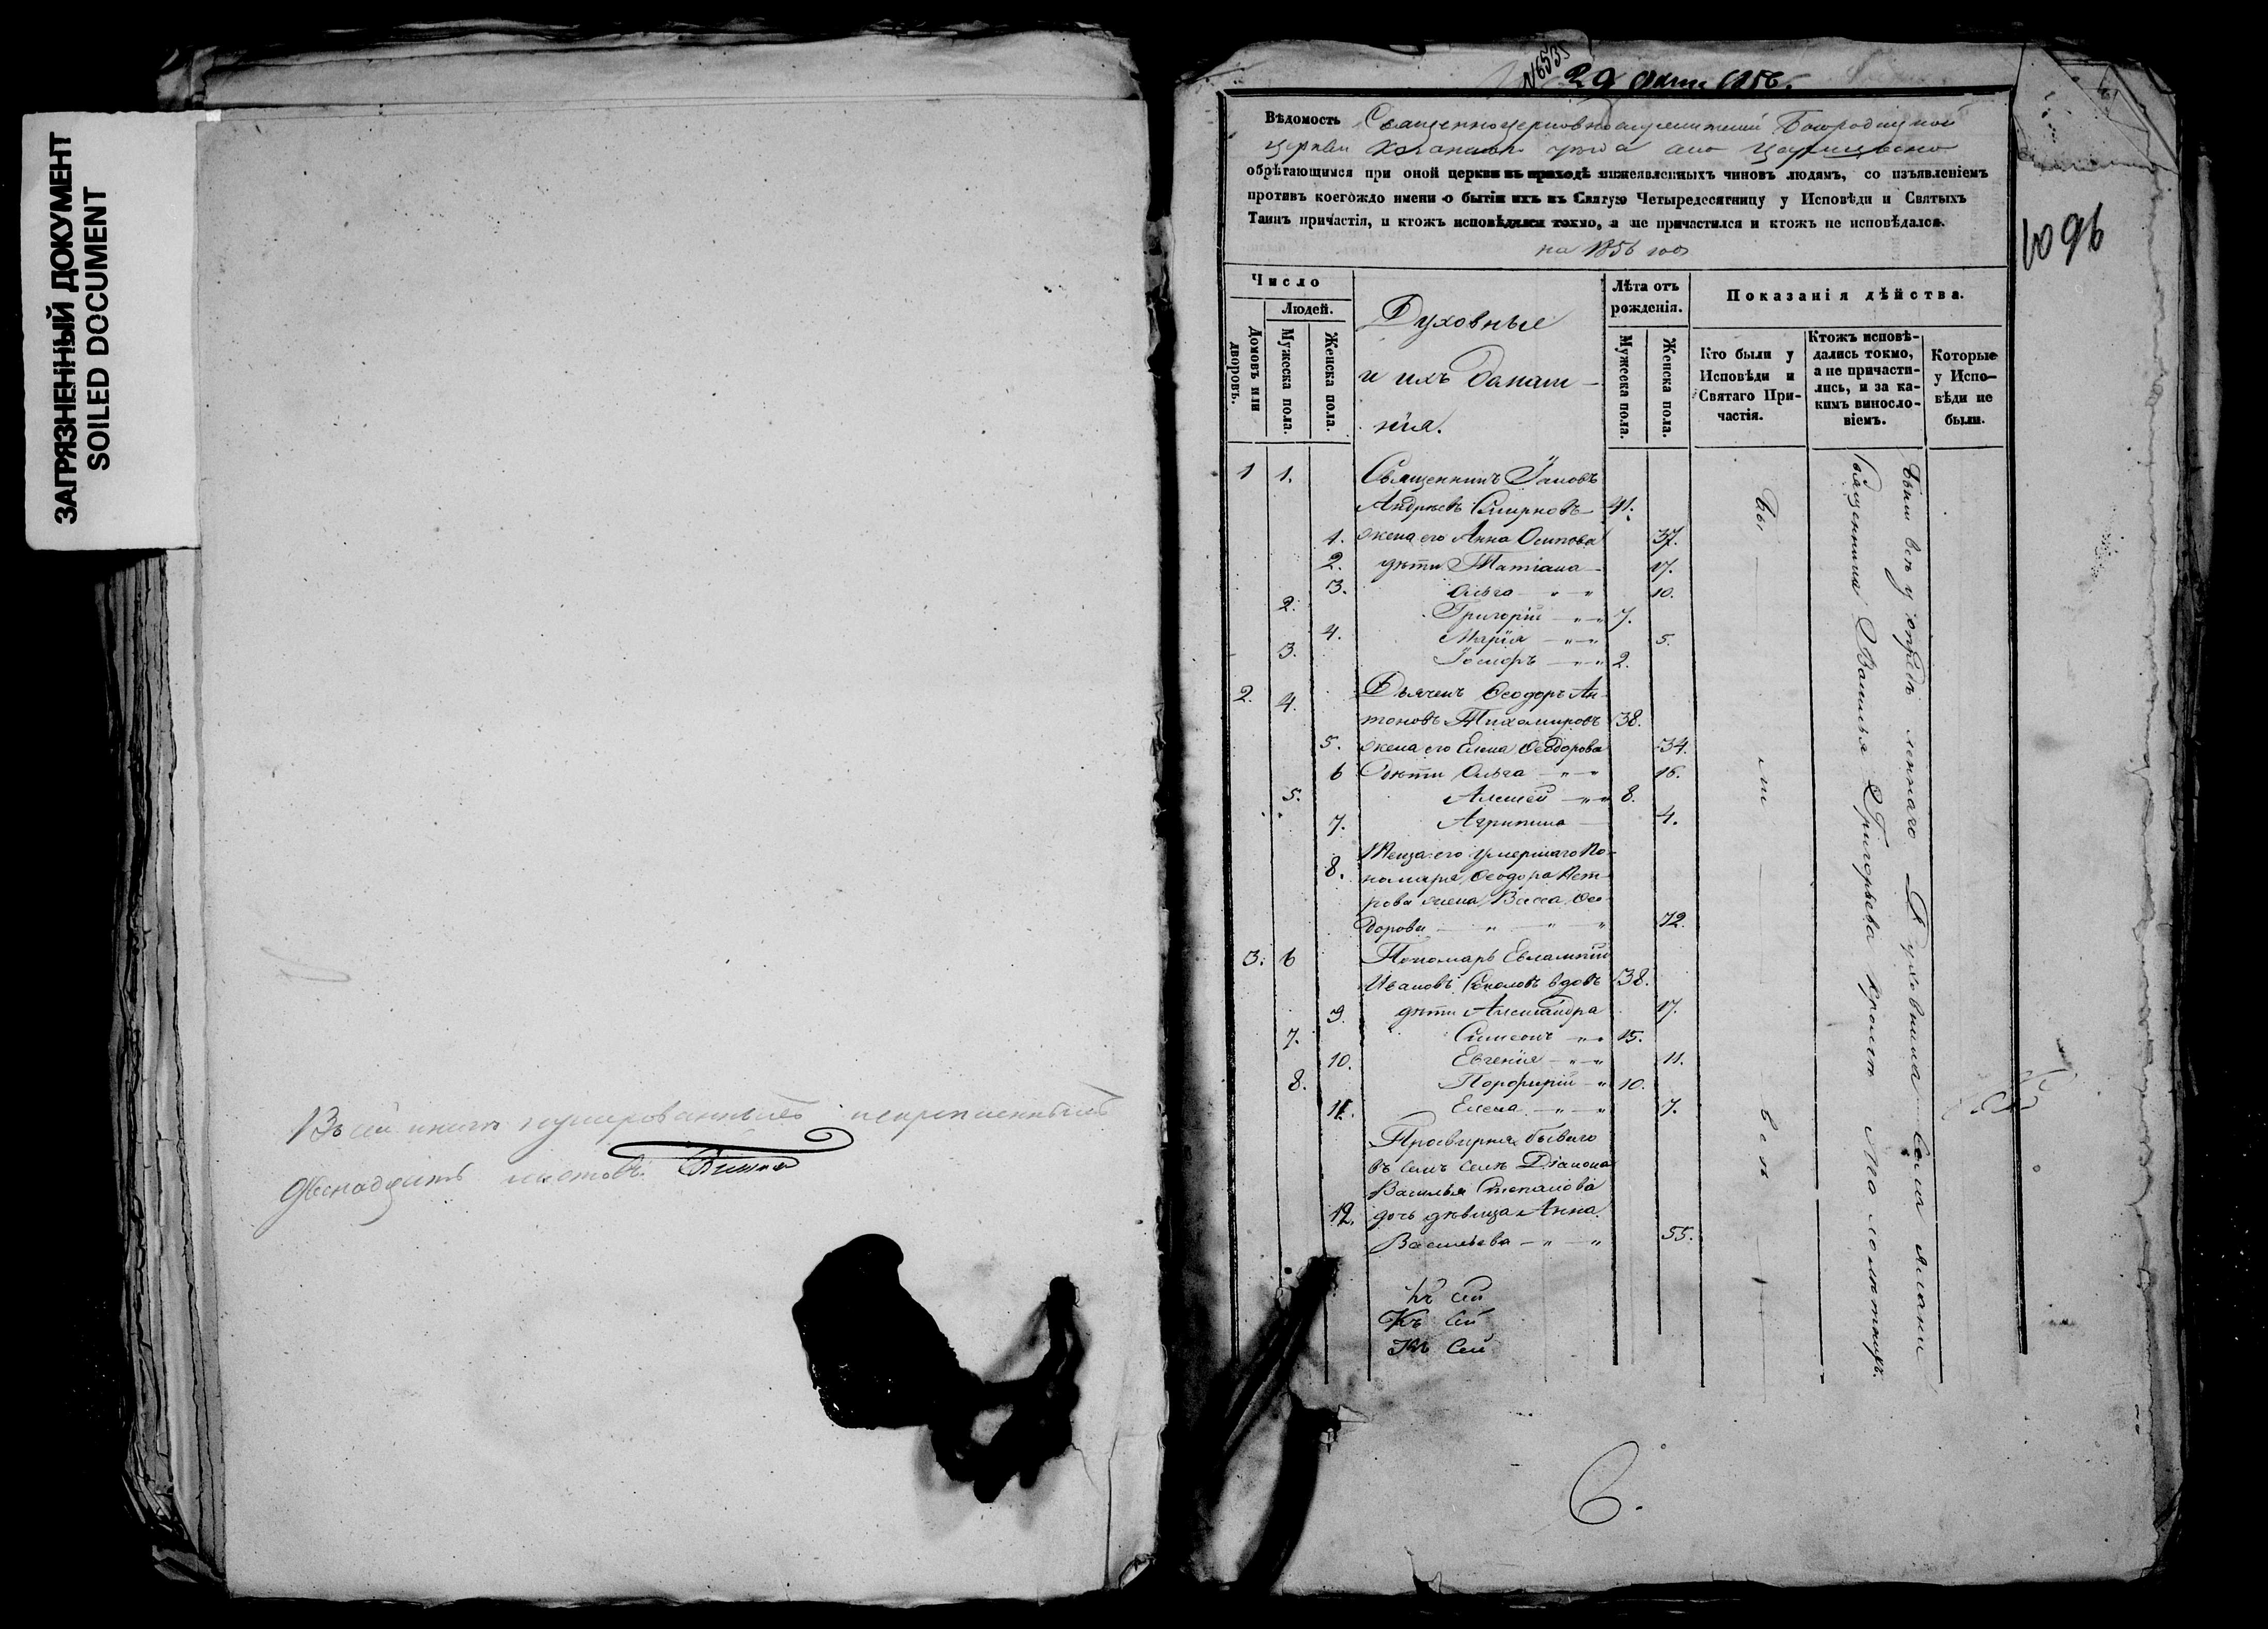 ЗАГРЯЗНЕННЫЙ ДОКУМЕНТ
SOILED DOCUMENT
двенадцать листовъ.
№6535
29 1856.
1096
Вѣдомость Священноцерковнослужителей Богородицкой
церкви уѣзда села
обрѣтающимся при оной церкви въ приходѣ нижеявленныхъ чиновъ людямъ, со изъявленіемъ
противъ коегождо имени о бытіи ихъ въ Святую Четыредесятницу у Исповѣди и Святыхъ
Таинъ причастія, и ктожъ исповѣдался токмо, а не причастился и ктожъ не исповѣдался.
на 1856 годъ
Число
Людей.
Домовъ или дворовъ.
Мужеска пола.
Женска пола.
Духовные
и ихъ домаш-
нія.
Лѣта отъ
рожденія.
Мужеска пола.
Женска пола.
Показанія дѣйства.
Кто были у
Исповѣди и
Святаго При-
частія.
Ктожъ исповѣ-
дались токмо,
а не причасти-
лись, и за ка-
кимъ винослo-
віемъ.
Которые
у Испо-
вѣди не
были.
1 1. Священникъ Іаковъ
Андреевъ Смирновъ 41.
1. жена его Анна Осипова 37.
2. дѣти Татіана 17.
3. Ольга - " - " 10.
2. Григорій - " - " 7.
4. Марія - " - " 5.
3. Іосифъ - " - " 2.
2. 4. Дьячекъ Ѳеодоръ Ан-
тоновъ Тихомировъ 38.
5. жена его Елена Ѳеодорова 34.
6 Дѣти Ольга - " - " 16.
5. Алексѣй - " - " 8.
7. Агрипина 4.
Теща его умершаго По-
8. номаря Ѳеодора Пет-
рова жена Васса Ѳео-
дорова - " - " - " 72.
3. 6 Пономарь Евлампій
Ивановъ Соколовъ вдовъ 38.
9. дѣти Александра 17.
7. Симеонъ - " 15.
10. Евгенія - " - " 11.
8. Порфирій - " 10.
11. Елена - " - " 7.
Просвирня бывшаго
въ семъ селѣ Діакона
Василья Степанова
12. дочь дѣвица Анна
Васильева - " - " 55.
Бы ли всѣ
Были всѣ у опредѣленнаго Духовника села
Священника Василья Григорьева кромѣ малолѣтнихъ.
Къ сей
Къ сей
Къ сей
6.